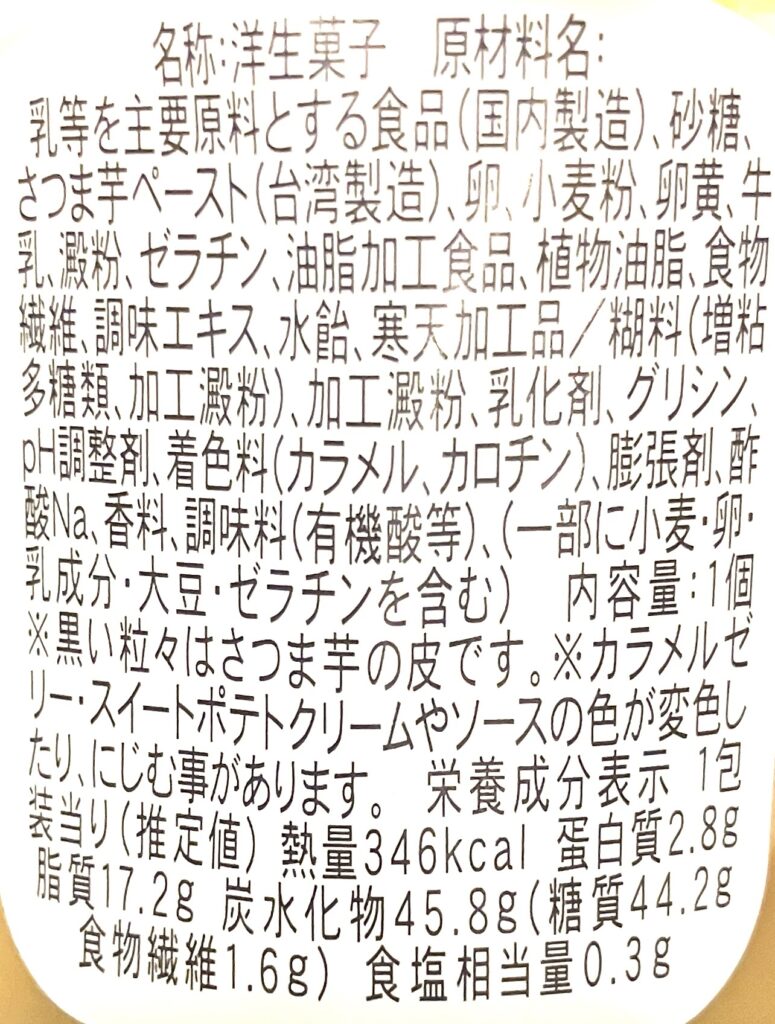 名称:洋生菓子　原材料名:
乳等を主要原料とする食品(国内製造)、砂糖、
さつま芋ペースト(台湾製造)、卵、小麦粉、卵黄、牛
乳、澱粉、ゼラチン、油脂加工食品、植物油脂、食物
繊維、調味エキス、水飴、寒天加工品／糊料(増粘
多糖類、加工澱粉)、加工澱粉、乳化剤、グリシン、
pH調整剤、着色料(カラメル、カロチン)、膨張剤、酢
酸Na、香料、調味料(有機酸等)、(一部に小麦・卵・
乳成分・大豆・ゼラチンを含む)　内容量:1個
※黒い粒々はさつま芋の皮です。※カラメルゼ
リー・スイートポテトクリームやソースの色が変色し
たり、にじむ事があります。　栄養成分表示　1包
装当り(推定値)　熱量346kcal　蛋白質2.8g
脂質17.2g　炭水化物45.8g(糖質44.2g
食物繊維1.6g)　食塩相当量0.3g